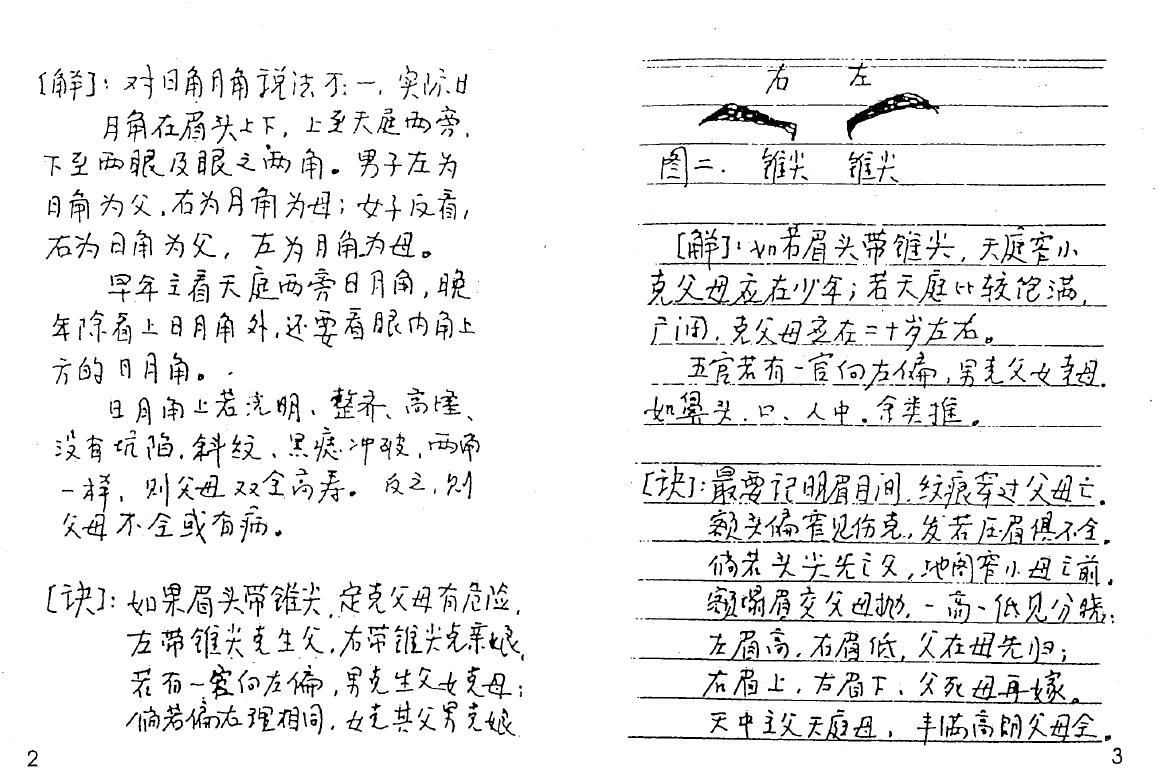 [解]：对日角月角说法不一，实际日
月角在眉头上下，上至天庭两旁，
下至两眼及眼之两角。男子左为
日角为父，右为月角为母；女子反看，
右为日角为父，左为月角为母。
早年主看天庭两旁日月角，晚
年除看上日月角外，还要看眼内角上
方的日月角。
日月角上若光明、整齐、高隆、
没有坑陷、斜纹、黑痣冲破，两角
一样，则父母双全高寿。反之，则
父母不全或有病。
[诀]：如果眉头带锥尖，定克父母有危险，
左带锥尖克生父，右带锥尖克亲娘，
若有一官向左偏，男克生父女克母；
倘若偏右理相同，女克其父男克娘
2
右 左
图二. 锥尖 锥尖
[解]：如若眉头带锥尖，天庭窄小
克父母应在少年；若天庭比较饱满，
广阔，克父母应在二十岁左右。
五官若有一官向左偏，男克父女克母，
如鼻头、口、人中。余类推。
[诀]：最要记明眉目间，纹痕穿过父母亡。
额头偏窄见伤克，发若压眉俱不全。
倘若头尖先亡父，地阁窄小母亡前。
额塌眉交父母抛，一高一低见分晓：
左眉高，右眉低，父在母先归；
右眉上，左眉下，父死母再嫁。
天中主父天庭母，丰满高朗父母全。
3